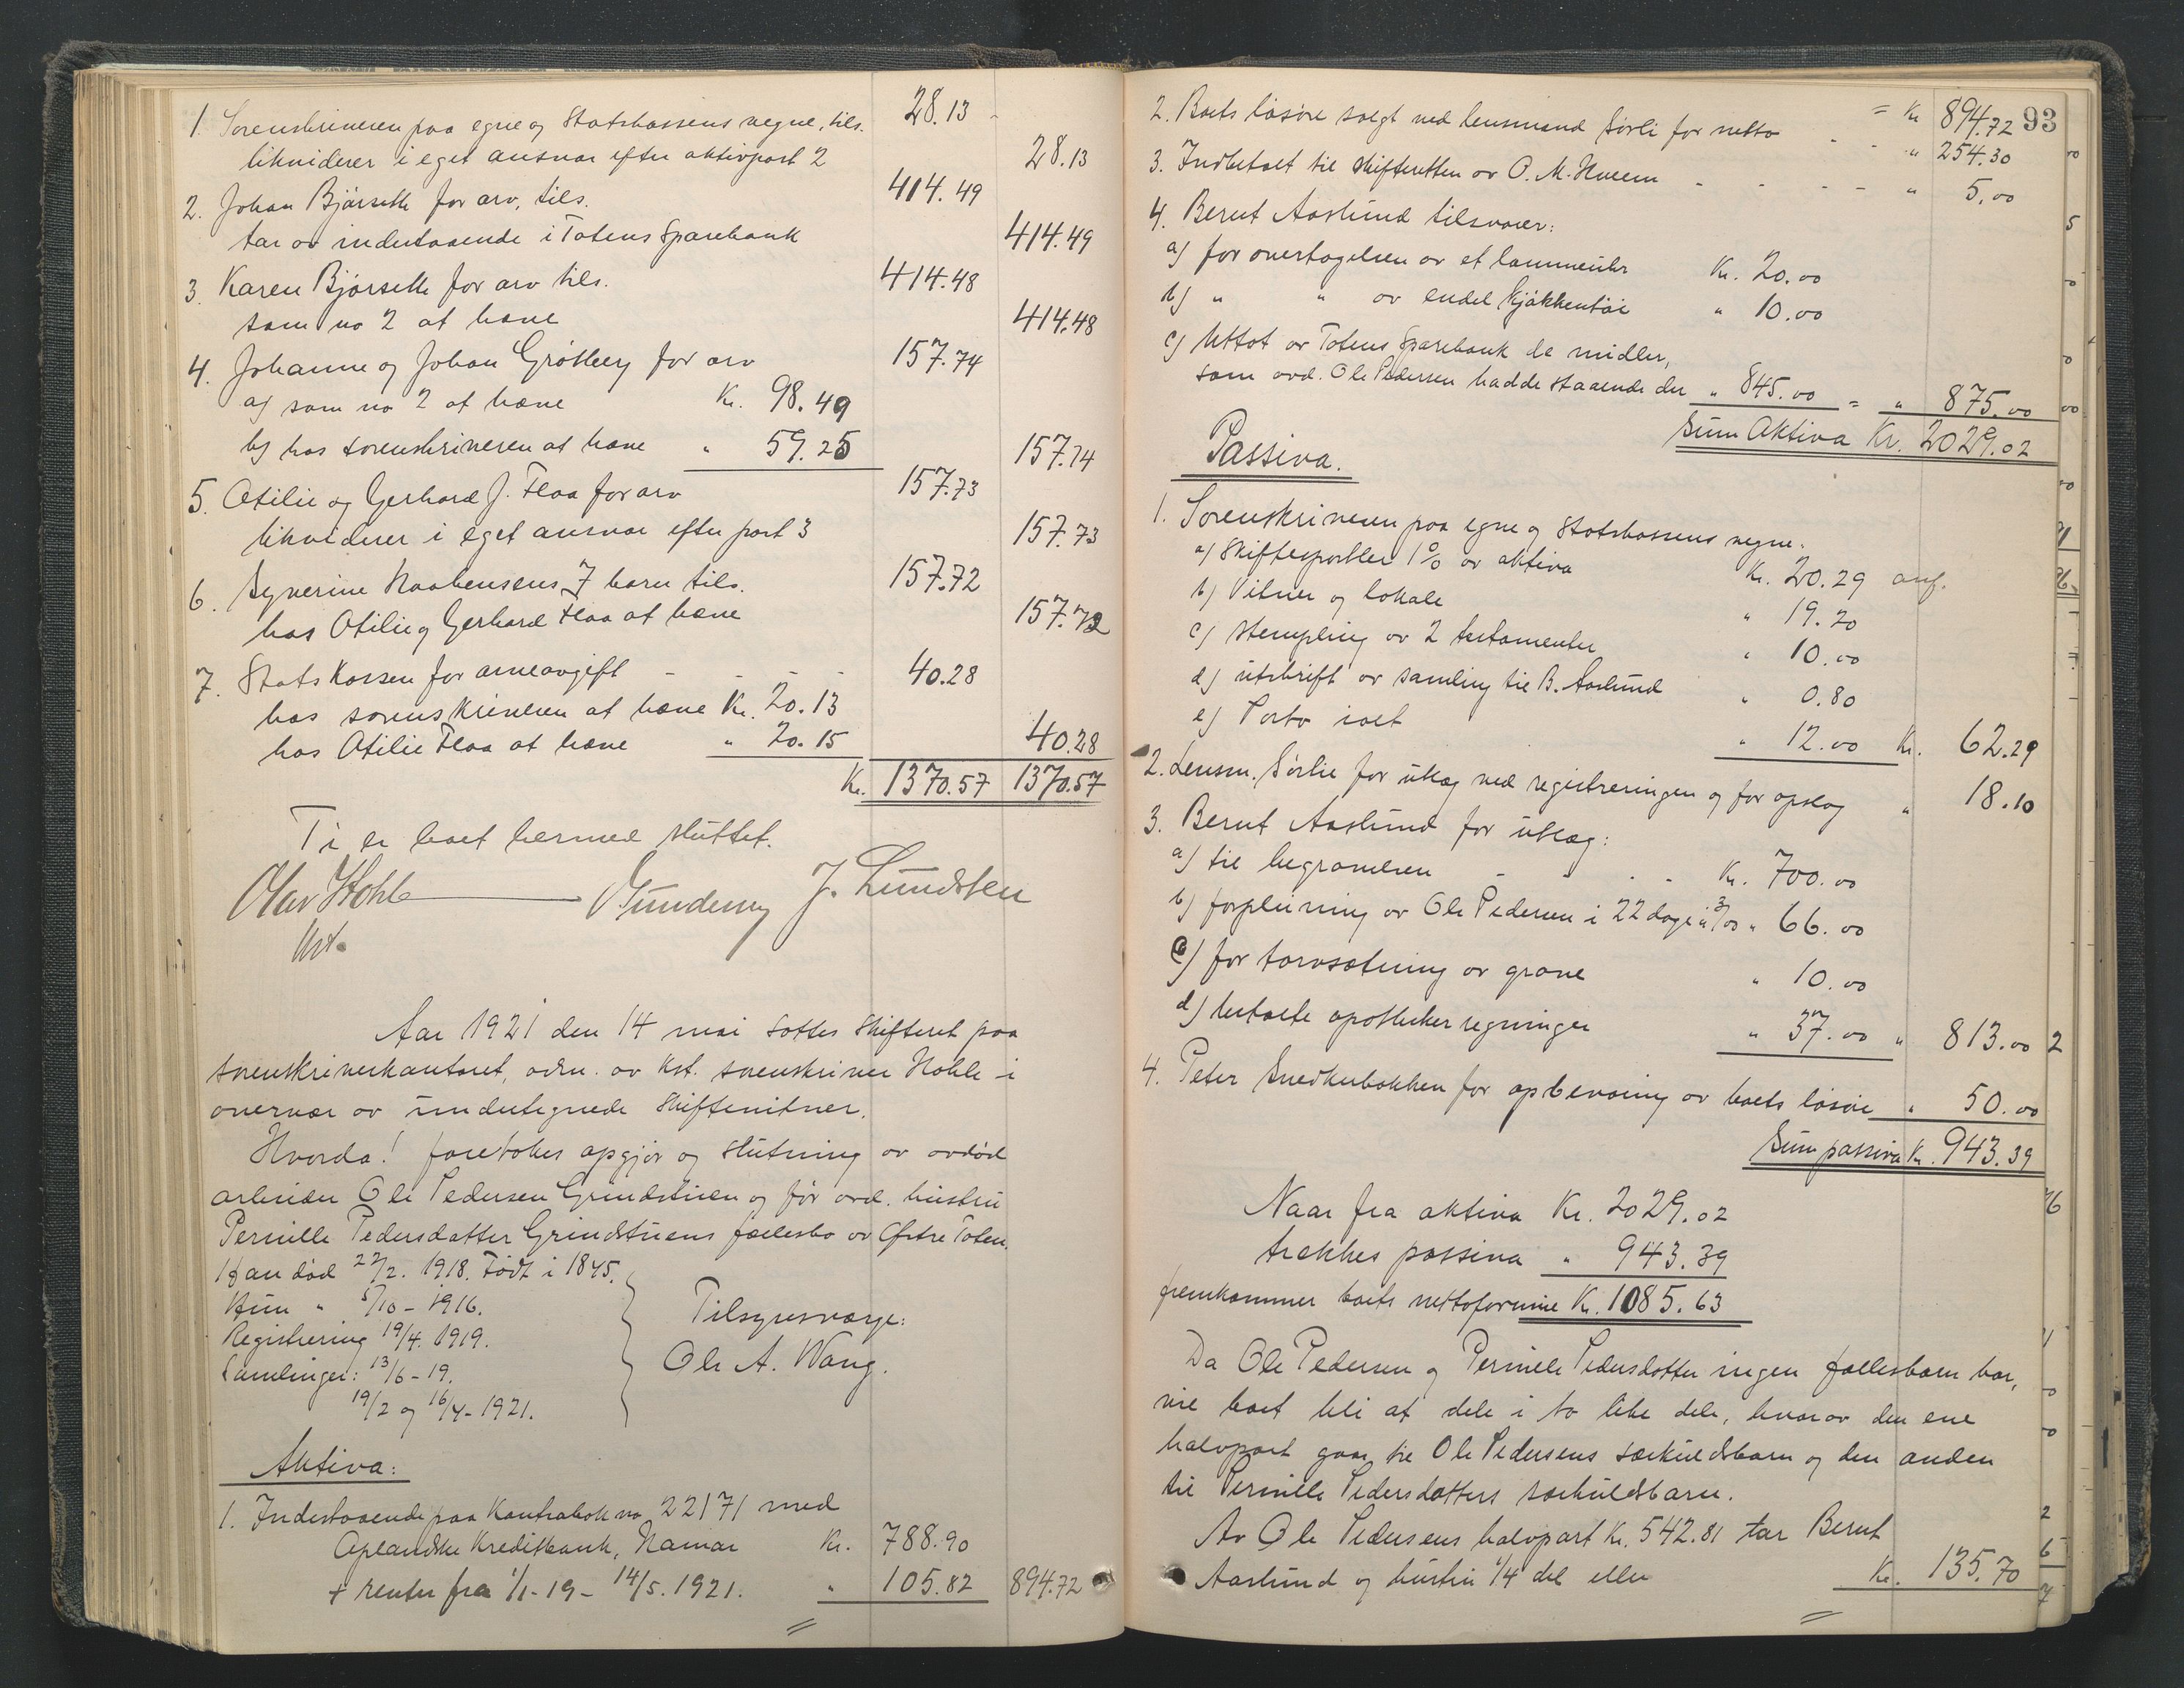 1. Sorenskriveren paa egne og Statskassens vegne, tils. 28.13
likviderer i eget ansvar efter aktivpost 2 28.13
2. Johan Bjørseth for arv, tils. 414.49
tar av indestaaende i Totens Sparebank 414.49
3. Karen Bjørseth for arv tils. 414.48
som no 2 at hæve 414.48
4. Johanne og Johan Grøtberg for arv 157.74
a) som no 2 at hæve Kr. 98.49
b) hos sorenskriveren at hæve " 59.25 157.74
5. Otilie og Gerhard J. Flaa for arv 157.73
likviderer i eget ansvar efter post 3 157.73
6. Syverine Haakensens 7 barn tils. 157.72
hos Otilie og Gerhard Flaa at hæve 157.72
7. Statskassen for arveavgift - - - 40.28
hos sorenskriveren at hæve Kr. 20.13
hos Otilie Flaa at hæve " 20.15 40.28
Kr. 1370.57 1370.57
Ti er boet hermed sluttet.
Olav Hohle J. Lundsten
kst.
Aar 1921 den 14 mai sattes skifteret paa
sorenskriverkontoret, adm. av kst. sorenskriver Hohle i
overvær av undertegnede skiftevitner.
Hvorda! foretokes opgjør og slutning av avdød
arbeider Ole Pedersen Grindstuen og før avd. hustru
Pernille Pedersdatter Grindstuens fællesbo av Østre Toten.
Han død 22/2. 1918. Født i 1845.
Hun " 5/10 - 1916.
Registrering 19/4. 1919.
Samlinger: 13/6 - 19.
19/2 og 16/4 - 1921.
Tilsynsværge:
Ole A. Wang.
Aktiva:
1. Indestaaende paa Kontrabok no 22171 med
Oplandske Kreditbank, Hamar Kr. 788.90
+ renter fra 1/1-19 - 14/5. 1921. " 105.82 894.72
93
= Kr 894.72
2. Boets løsøre solgt ved lensmand Sørli for netto - - " 254.30
3. Indbetalt til skifteretten av O. M. Hveem - - - - " 5.00
4. Bernt Aaslund tilsvarer:
a) for overtagelsen av et lommeuhr Kr. 20.00
b) " " av endel kjøkkentøi " 10.00
c) Uttat av Totens Sparebank de midler,
som avd. Ole Pedersen hadde staaende der " 845.00 = " 875.00
Sum Aktiva Kr. 2029.02
Passiva.
1. Sorenskriveren paa egne og Statskassens vegne.
a) Skiftesportler 1% av aktiva Kr. 20.29 anf.
b) Vitner og lokale " 19.20
c) stempling av 2 testamenter " 10.00
d) utskrift av samling til B. Aaslund " 0.80
e) Porto ialt " 12.00 Kr. 62.29
2. Lensm. Sørlie for utlæg ved registreringen og for opslag " 18.10
3. Bernt Aaslund for utlæg:
a) til begravelsen - - - Kr. 700.00
b) forpleining av Ole Pedersen i 22 dage á 3/00 " 66.00
c) for torvsætning av grave " 10.00
d) betalte apotheker regninger " 37.00 " 813.00
4. Peter Snedkerbakken for opbevaring av boets løsøre " 50.00
Sum passiva Kr. 943.39
Naar fra aktiva Kr. 2029.02
trækkes passiva " 943.39
fremkommer boets nettoformue Kr. 1085.63
Da Ole Pedersen og Pernille Pedersdatter ingen fællesbarn har,
vie boet bli at dele i to like dele, hvorav den ene
halvpart gaar til Ole Pedersens særkuldsbarn og den anden
til Pernille Pedersdatters særkuldsbarn.
Av Ole Pedersens halvpart Kr. 542.81 tar Bernt
Aaslund og hustru 1/4 del eller Kr. 135.70